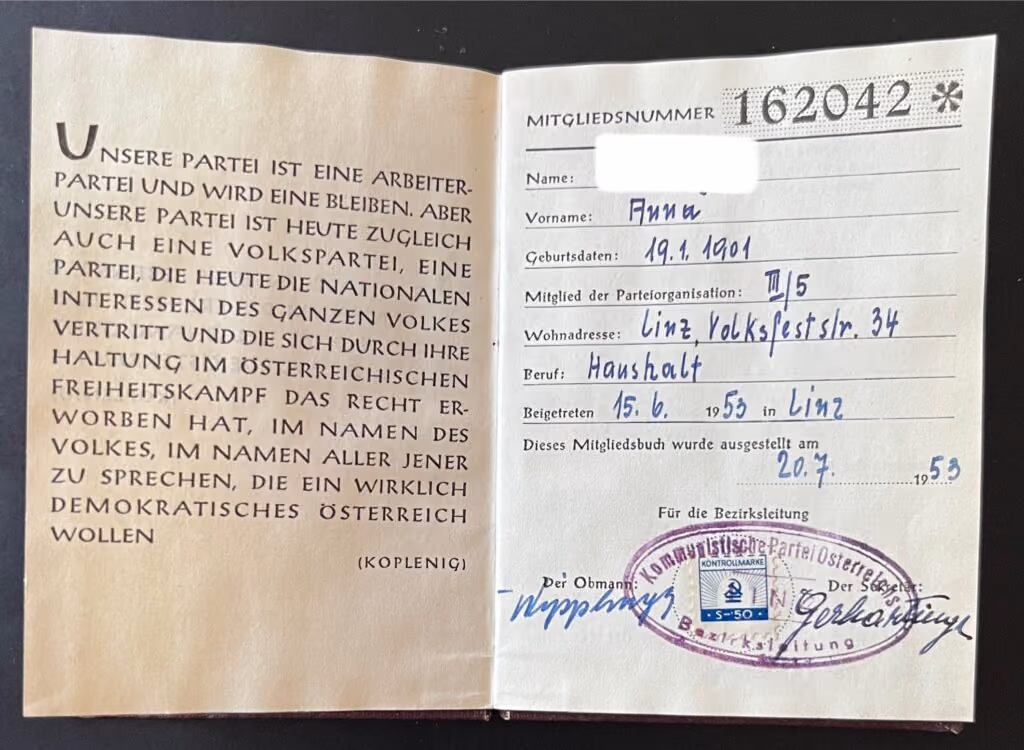 UNSERE PARTEI IST EINE ARBEITER-
PARTEI UND WIRD EINE BLEIBEN. ABER
UNSERE PARTEI IST HEUTE ZUGLEICH
AUCH EINE VOLKSPARTEI, EINE
PARTEI, DIE HEUTE DIE NATIONALEN
INTERESSEN DES GANZEN VOLKES
VERTRITT UND DIE SICH DURCH IHRE
HALTUNG IM ÖSTERREICHISCHEN
FREIHEITSKAMPF DAS RECHT ER-
WORBEN HAT, IM NAMEN DES
VOLKES, IM NAMEN ALLER JENER
ZU SPRECHEN, DIE EIN WIRKLICH
DEMOKRATISCHES ÖSTERREICH
WOLLEN
(KOPLENIG)
MITGLIEDSNUMMER 162042 *
Name:
Vorname: Anna
Geburtsdaten: 19.1.1901
Mitglied der Parteiorganisation: III/5
Wohnadresse: Linz, Volksfeststr. 34
Beruf: Haushalt
Beigetreten 15.6. 1953 in Linz
Dieses Mitgliedsbuch wurde ausgestellt am
20.7. 1953
Für die Bezirksleitung
Kommunistische Partei Österreichs
KONTROLLMARKE
Der Obmann: Der Sekretär:
S-50
Bezirksleitung